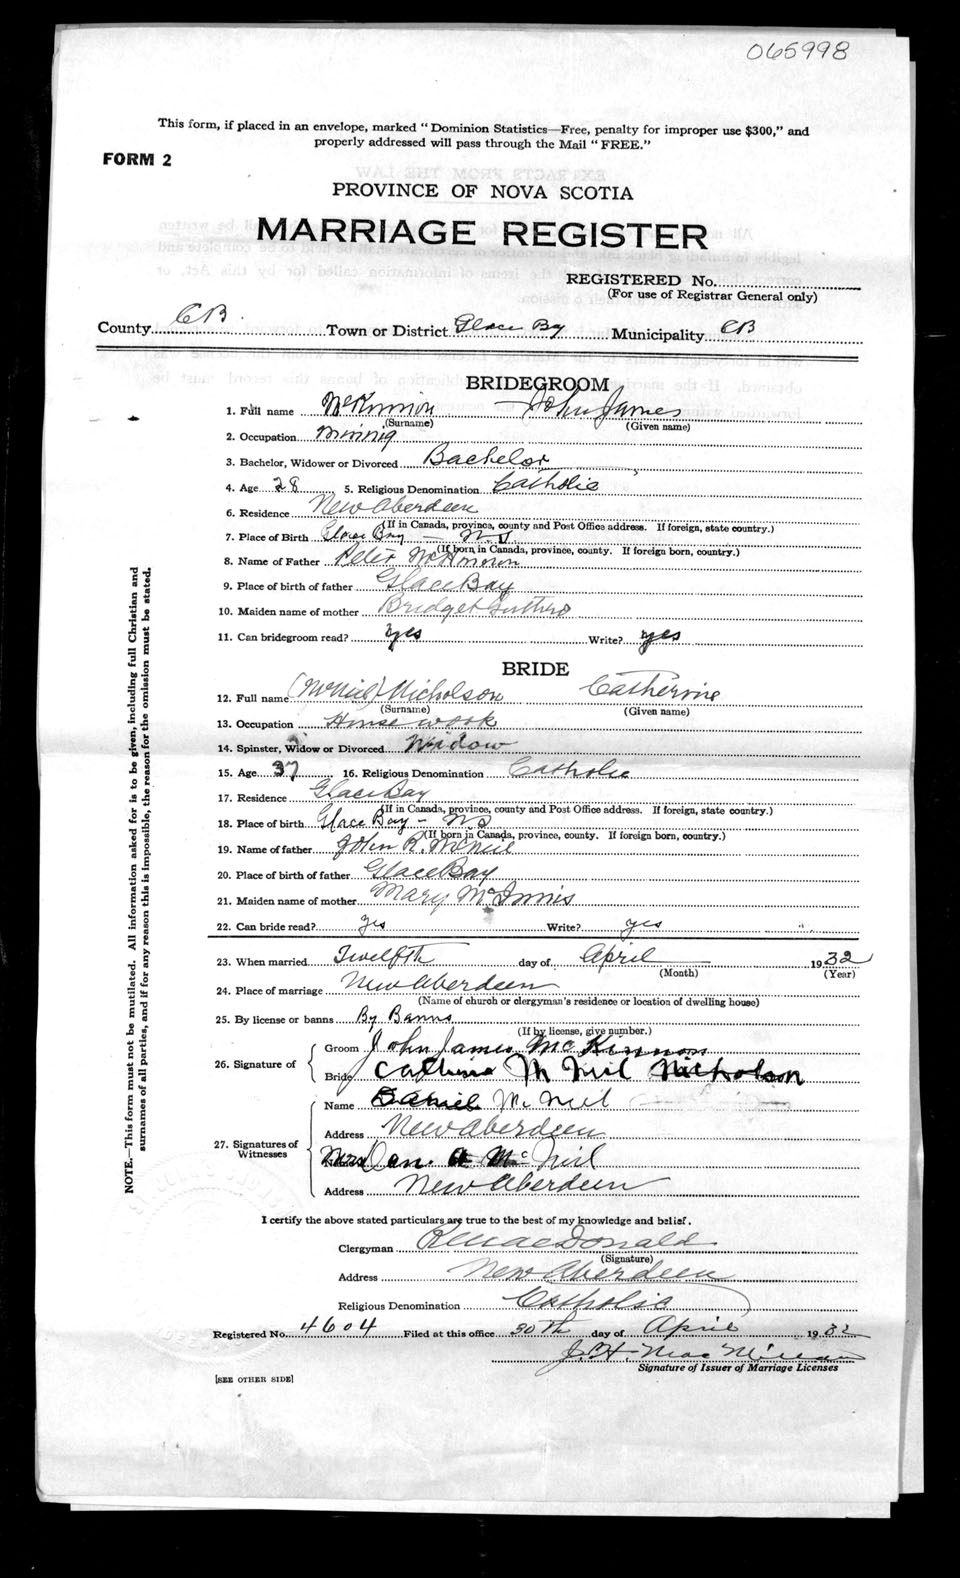 065998
This form, if placed in an envelope, marked "Dominion Statistics—Free, penalty for improper use $300," and
properly addressed will pass through the Mail "FREE."
FORM 2
PROVINCE OF NOVA SCOTIA
MARRIAGE REGISTER
REGISTERED No.
(For use of Registrar General only)
County CB. Town or District Glace By Municipality CB
BRIDEGROOM
1. Full name McKinnon John James
(Surname) (Given name)
2. Occupation Mining
3. Bachelor, Widower or Divorced Bachelor
4. Age 28 5. Religious Denomination Catholic
6. Residence New Aberdeen
(If in Canada, province, county and Post Office address. If foreign, state country.)
7. Place of Birth Glace Bay — N.S
(If born in Canada, province, county. If foreign born, country.)
8. Name of Father Peter McKinnon
9. Place of birth of father Glace Bay
10. Maiden name of mother Bridget Guthro
11. Can bridegroom read? yes Write? yes
BRIDE
12. Full name (McNeil) Nicholson Catherine
(Surname) (Given name)
13. Occupation House work
14. Spinster, Widow or Divorced Widow
15. Age 37 16. Religious Denomination Catholic
17. Residence Glace Bay
(If in Canada, province, county and Post Office address. If foreign, state country.)
18. Place of birth Glace Bay - NS
(If born in Canada, province, county. If foreign born, country.)
19. Name of father John R. McNeil
20. Place of birth of father Glace Bay
21. Maiden name of mother Mary McInnis
22. Can bride read? yes Write? yes
23. When married Twelfth day of April 1932
(Month) (Year)
24. Place of marriage New Aberdeen
(Name of church or clergyman's residence or location of dwelling house)
25. By license or banns By Banns
(If by license, give number.)
26. Signature of Groom John James McKinnon
Bride Catherine McNeil Nicholson
27. Signatures of Witnesses
Name Daniel McNeil
Address New Aberdeen
Name Mrs Dan. A McNeil
Address New Aberdeen
I certify the above stated particulars are true to the best of my knowledge and belief.
Clergyman R MacDonald
(Signature)
Address New Aberdeen
Religious Denomination Catholic
Registered No. 4604 Filed at this office 30th day of April 1932
J. H. MacMillan
Signature of Issuer of Marriage Licenses
[SEE OTHER SIDE]
NOTE.—This form must not be mutilated. All information asked for is to be given, including full Christian and
surnames of all parties, and if for any reason this is impossible, the reason for the omission must be stated.